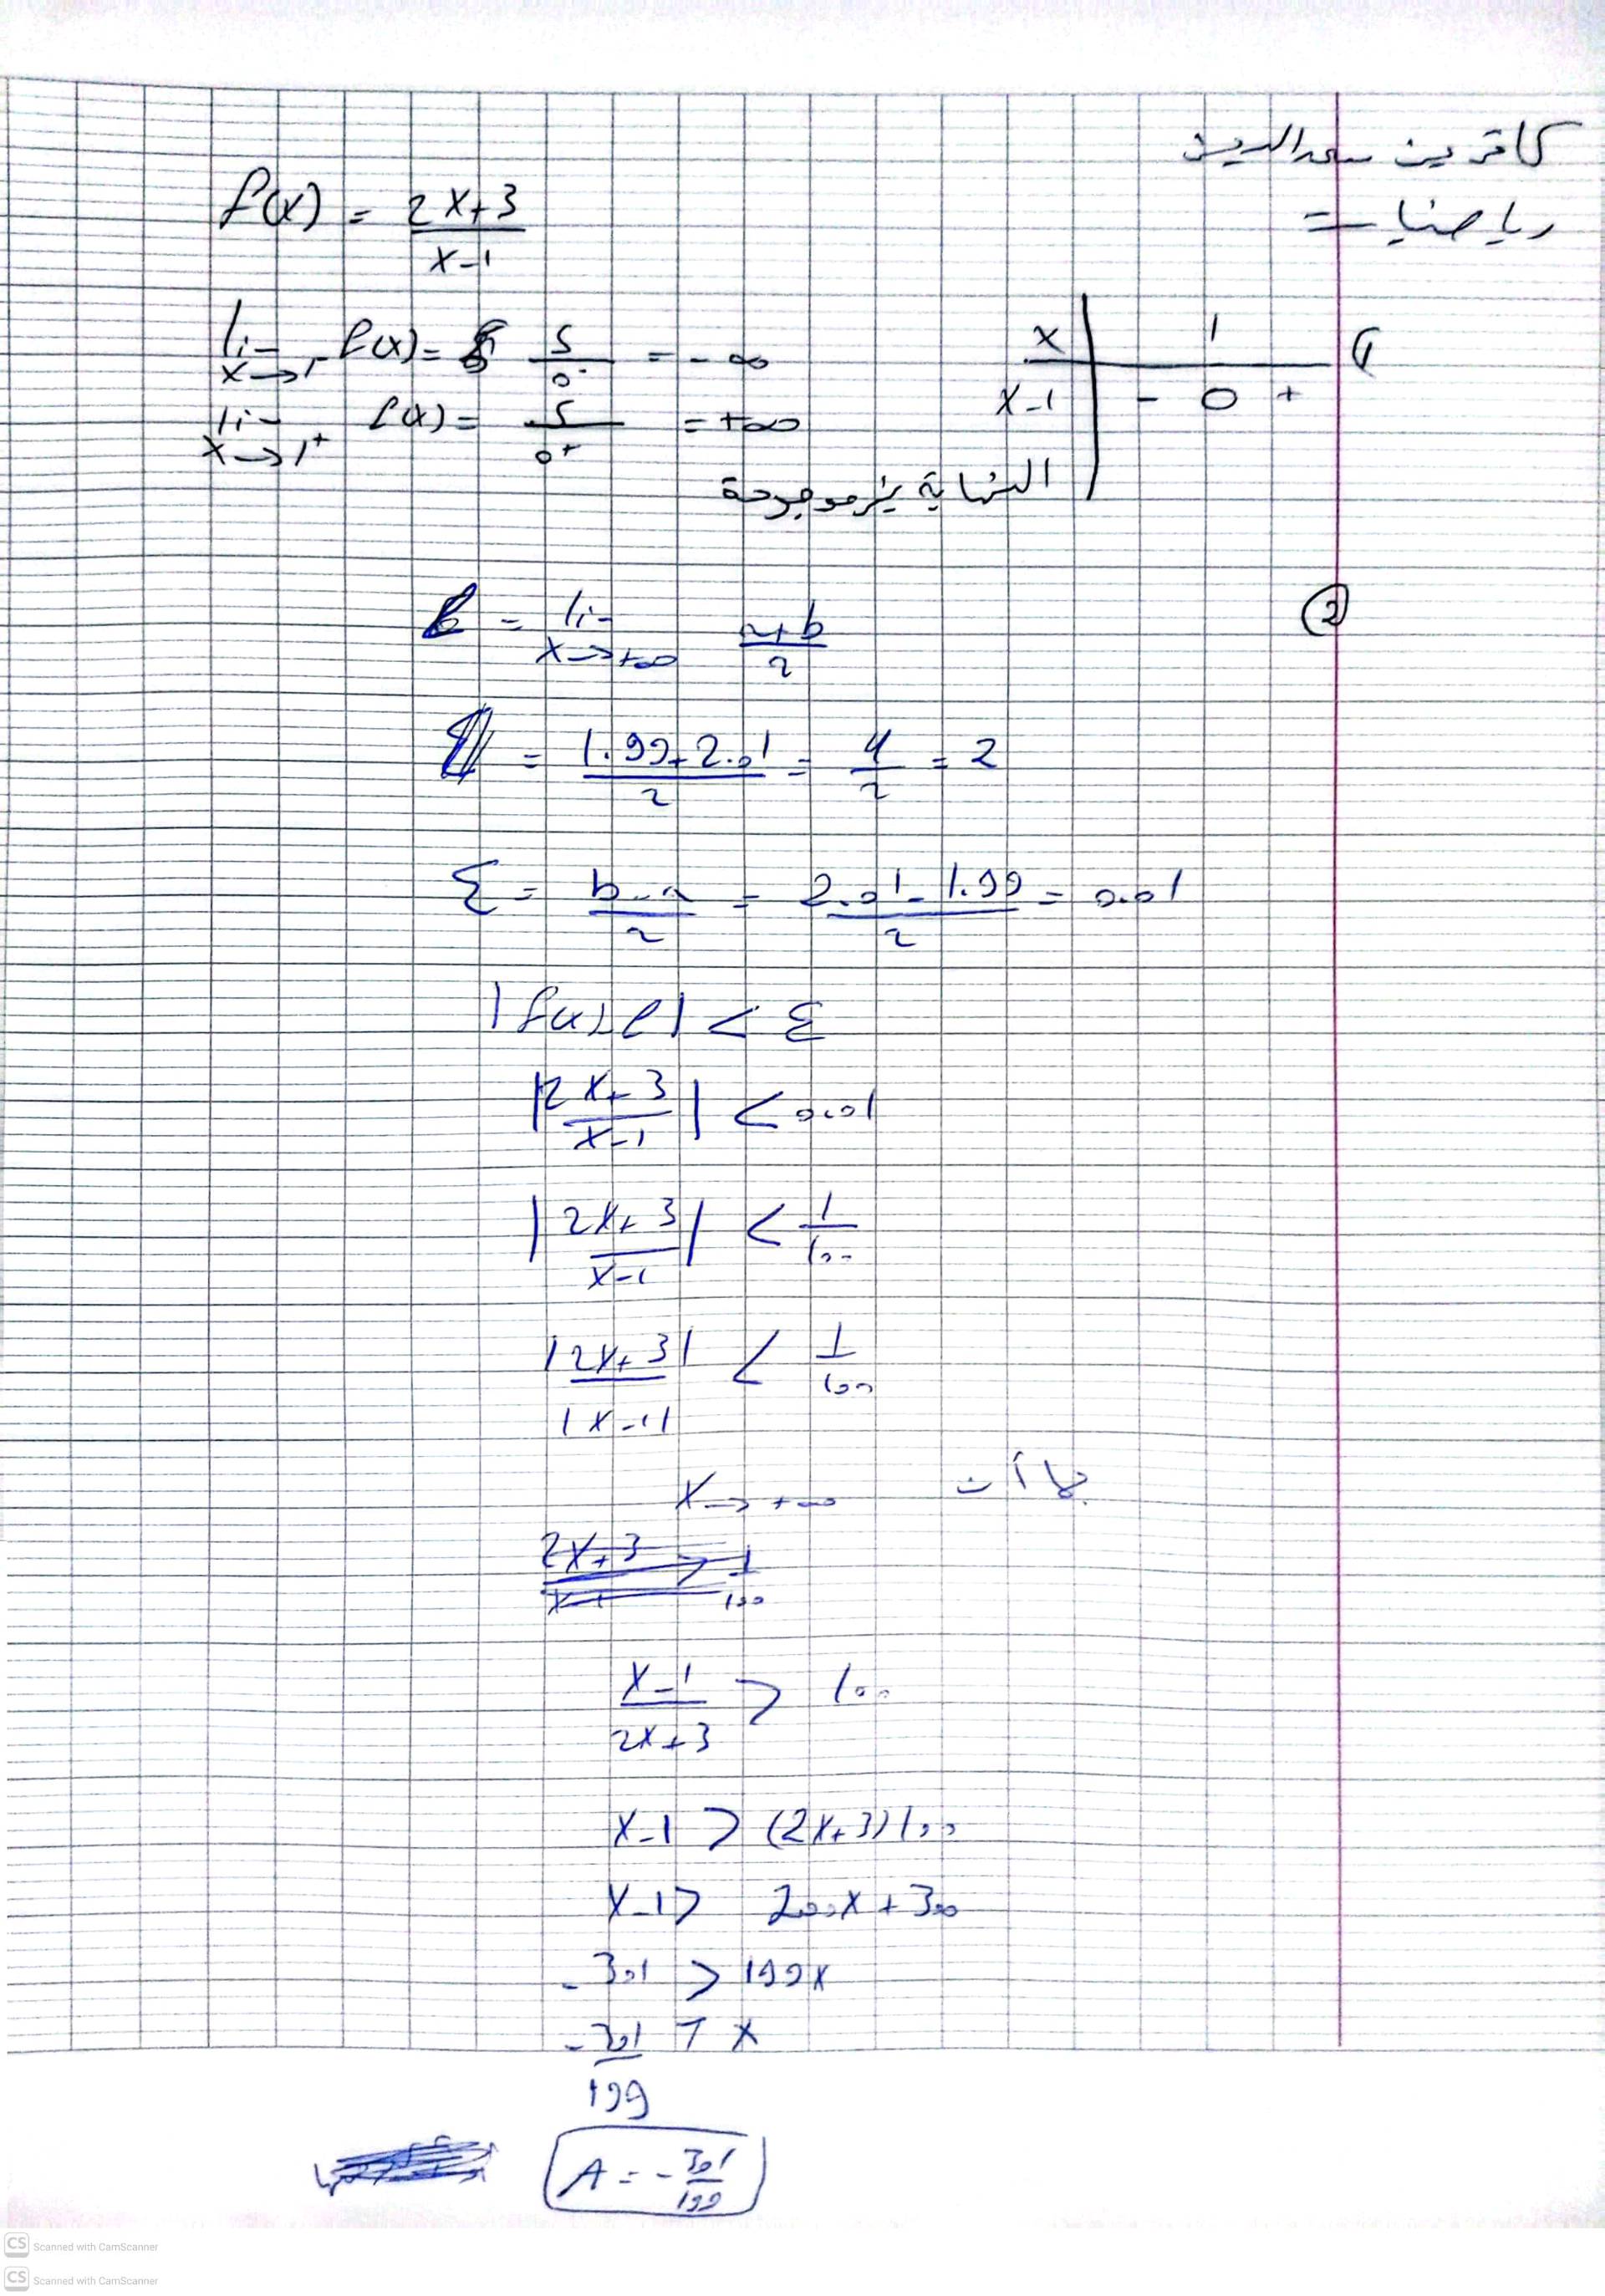 كاترين سعد الدين
رياضيات
f(x) = \frac{2x+3}{x-1}
\lim_{x \to 1^-} f(x) = \frac{5}{0^-} = -\infty
x | 1
x-1 | - 0 +
\lim_{x \to 1^+} f(x) = \frac{5}{0^+} = +\infty
النهاية غير موجودة
②
ℓ = \lim_{x \to +\infty} \frac{a+b}{2}
= \frac{1.99+2.01}{2} = \frac{4}{2} = 2
ε = \frac{b-a}{2} = \frac{2.01-1.99}{2} = 0.01
|f(x)-ℓ| < ε
|\frac{2x+3}{x-1}| < 0.01
|\frac{2x+3}{x-1}| < \frac{1}{100}
\frac{|2x+3|}{|x-1|} < \frac{1}{100}
بما أن x → +∞
\frac{x-1}{2x+3} > 100
x-1 > (2x+3)100
x-1 > 200x+300
-301 > 199x
-\frac{301}{199} > x
A = -\frac{301}{199}
CS Scanned with CamScanner
CS Scanned with CamScanner